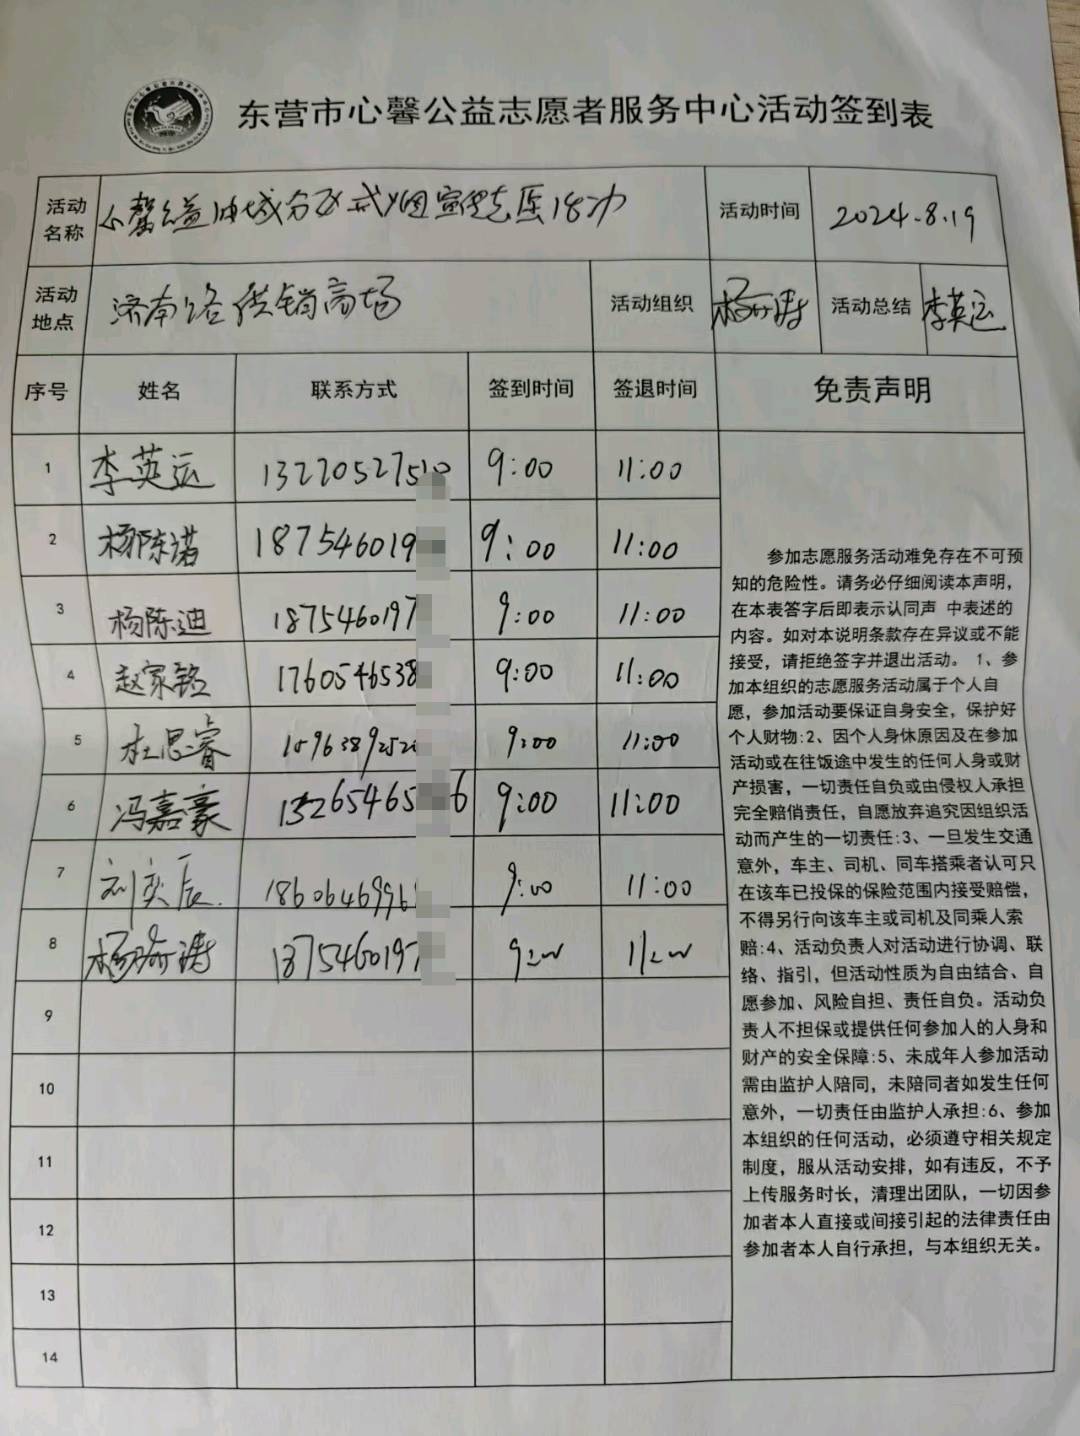 东营市心馨公益志愿者服务中心活动签到表
活动名称 心馨公益油城分队戒烟宣传志愿活动 活动时间 2024.8.19
活动地点 济南路供销商场 活动组织 杨 涛 活动总结 李英运
序号 姓名 联系方式 签到时间 签退时间 免责声明
1 李英运 132705275 9:00 11:00
2 杨陈诺 187546019 9:00 11:00
3 杨陈迪 1875460197 9:00 11:00
4 赵家铭 1760546538 9:00 11:00
5 杜思睿 1596389252 9:00 11:00
6 冯嘉豪 13265465 6 9:00 11:00
7 刘奕辰 1860646996 9:00 11:00
8 杨 涛 1875460197 9:00 11:00
9
10
11
12
13
14
参加志愿服务活动难免存在不可预
知的危险性。请务必仔细阅读本声明，
在本表签字后即表示认同声 中表述的
内容。如对本说明条款存在异议或不能
接受，请拒绝签字并退出活动。 1、参
加本组织的志愿服务活动属于个人自
愿，参加活动要保证自身安全，保护好
个人财物:2、因个人身休原因及在参加
活动或在往饭途中发生的任何人身或财
产损害，一切责任自负或由侵权人承担
完全赔偿责任，自愿放弃追究因组织活
动而产生的一切责任:3、一旦发生交通
意外，车主、司机、同车搭乘者认可只
在该车已投保的保险范围内接受赔偿，
不得另行向该车主或司机及同乘人索
赔:4、活动负责人对活动进行协调、联
络、指引，但活动性质为自由结合、自
愿参加、风险自担、责任自负。活动负
责人不担保或提供任何参加人的人身和
财产的安全保障:5、未成年人参加活动
需由监护人陪同，未陪同者如发生任何
意外，一切责任由监护人承担:6、参加
本组织的任何活动，必须遵守相关规定
制度，服从活动安排，如有违反，不予
上传服务时长，清理出团队，一切因参
加者本人直接或间接引起的法律责任由
参加者本人自行承担，与本组织无关。